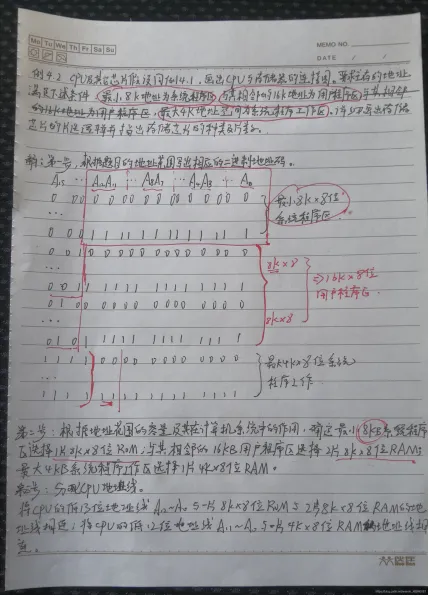 Mo Tu We Th Fr Sa Su
MEMO NO.
DATE / /
例4.2 CPU及其它芯片假设同例4.1,画出CPU与存储器的连接图。要求主存的地址
满足下述条件:最小8K地址为系统程序区,与其相邻的16K地址为用户程序区,
最大4K地址空间为系统程序工作区。详细写出存储
芯片的片选逻辑并指出存储芯片的种类及片数。
解:第一步,根据题目的地址范围写出相应的二进制地址码。
A15 … A12 A11 … A8 A7 … A4 A3 … A0
0 0 0 0 0 0 0 0 0 0 0 0 0 0 0 0
…
0 0 0 1 1 1 1 1 1 1 1 1 1 1 1 1
最小8K×8位
系统程序区
0 0 1 0 0 0 0 0 0 0 0 0 0 0 0 0
…
0 0 1 1 1 1 1 1 1 1 1 1 1 1 1 1
8K×8
0 1 0 0 0 0 0 0 0 0 0 0 0 0 0 0
…
0 1 0 1 1 1 1 1 1 1 1 1 1 1 1 1
8K×8
⇒16K×8位
用户程序区
1 1 1 1 0 0 0 0 0 0 0 0 0 0 0 0
…
1 1 1 1 1 1 1 1 1 1 1 1 1 1 1 1
最大4K×8位系统
程序工作
第二步:根据地址范围的容量及其在计算机系统中的作用,确定最小8KB系统程序
区选择1片8K×8位ROM;与其相邻的16KB用户程序区选择2片8K×8位RAM;
最大4KB系统程序工作区选择1片4K×8位RAM。
第三步:分配CPU地址线。
将CPU的低13位地址线A12~A0与1片8K×8位ROM与2片8K×8位RAM的地
址线相连;将CPU的低12位地址线A11~A0与1片4K×8位RAM地址线相
连。